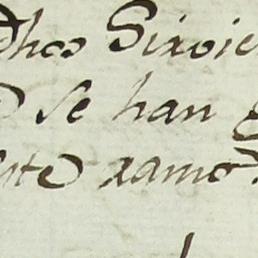 Dhos Sirvie
Se han
ste ramo